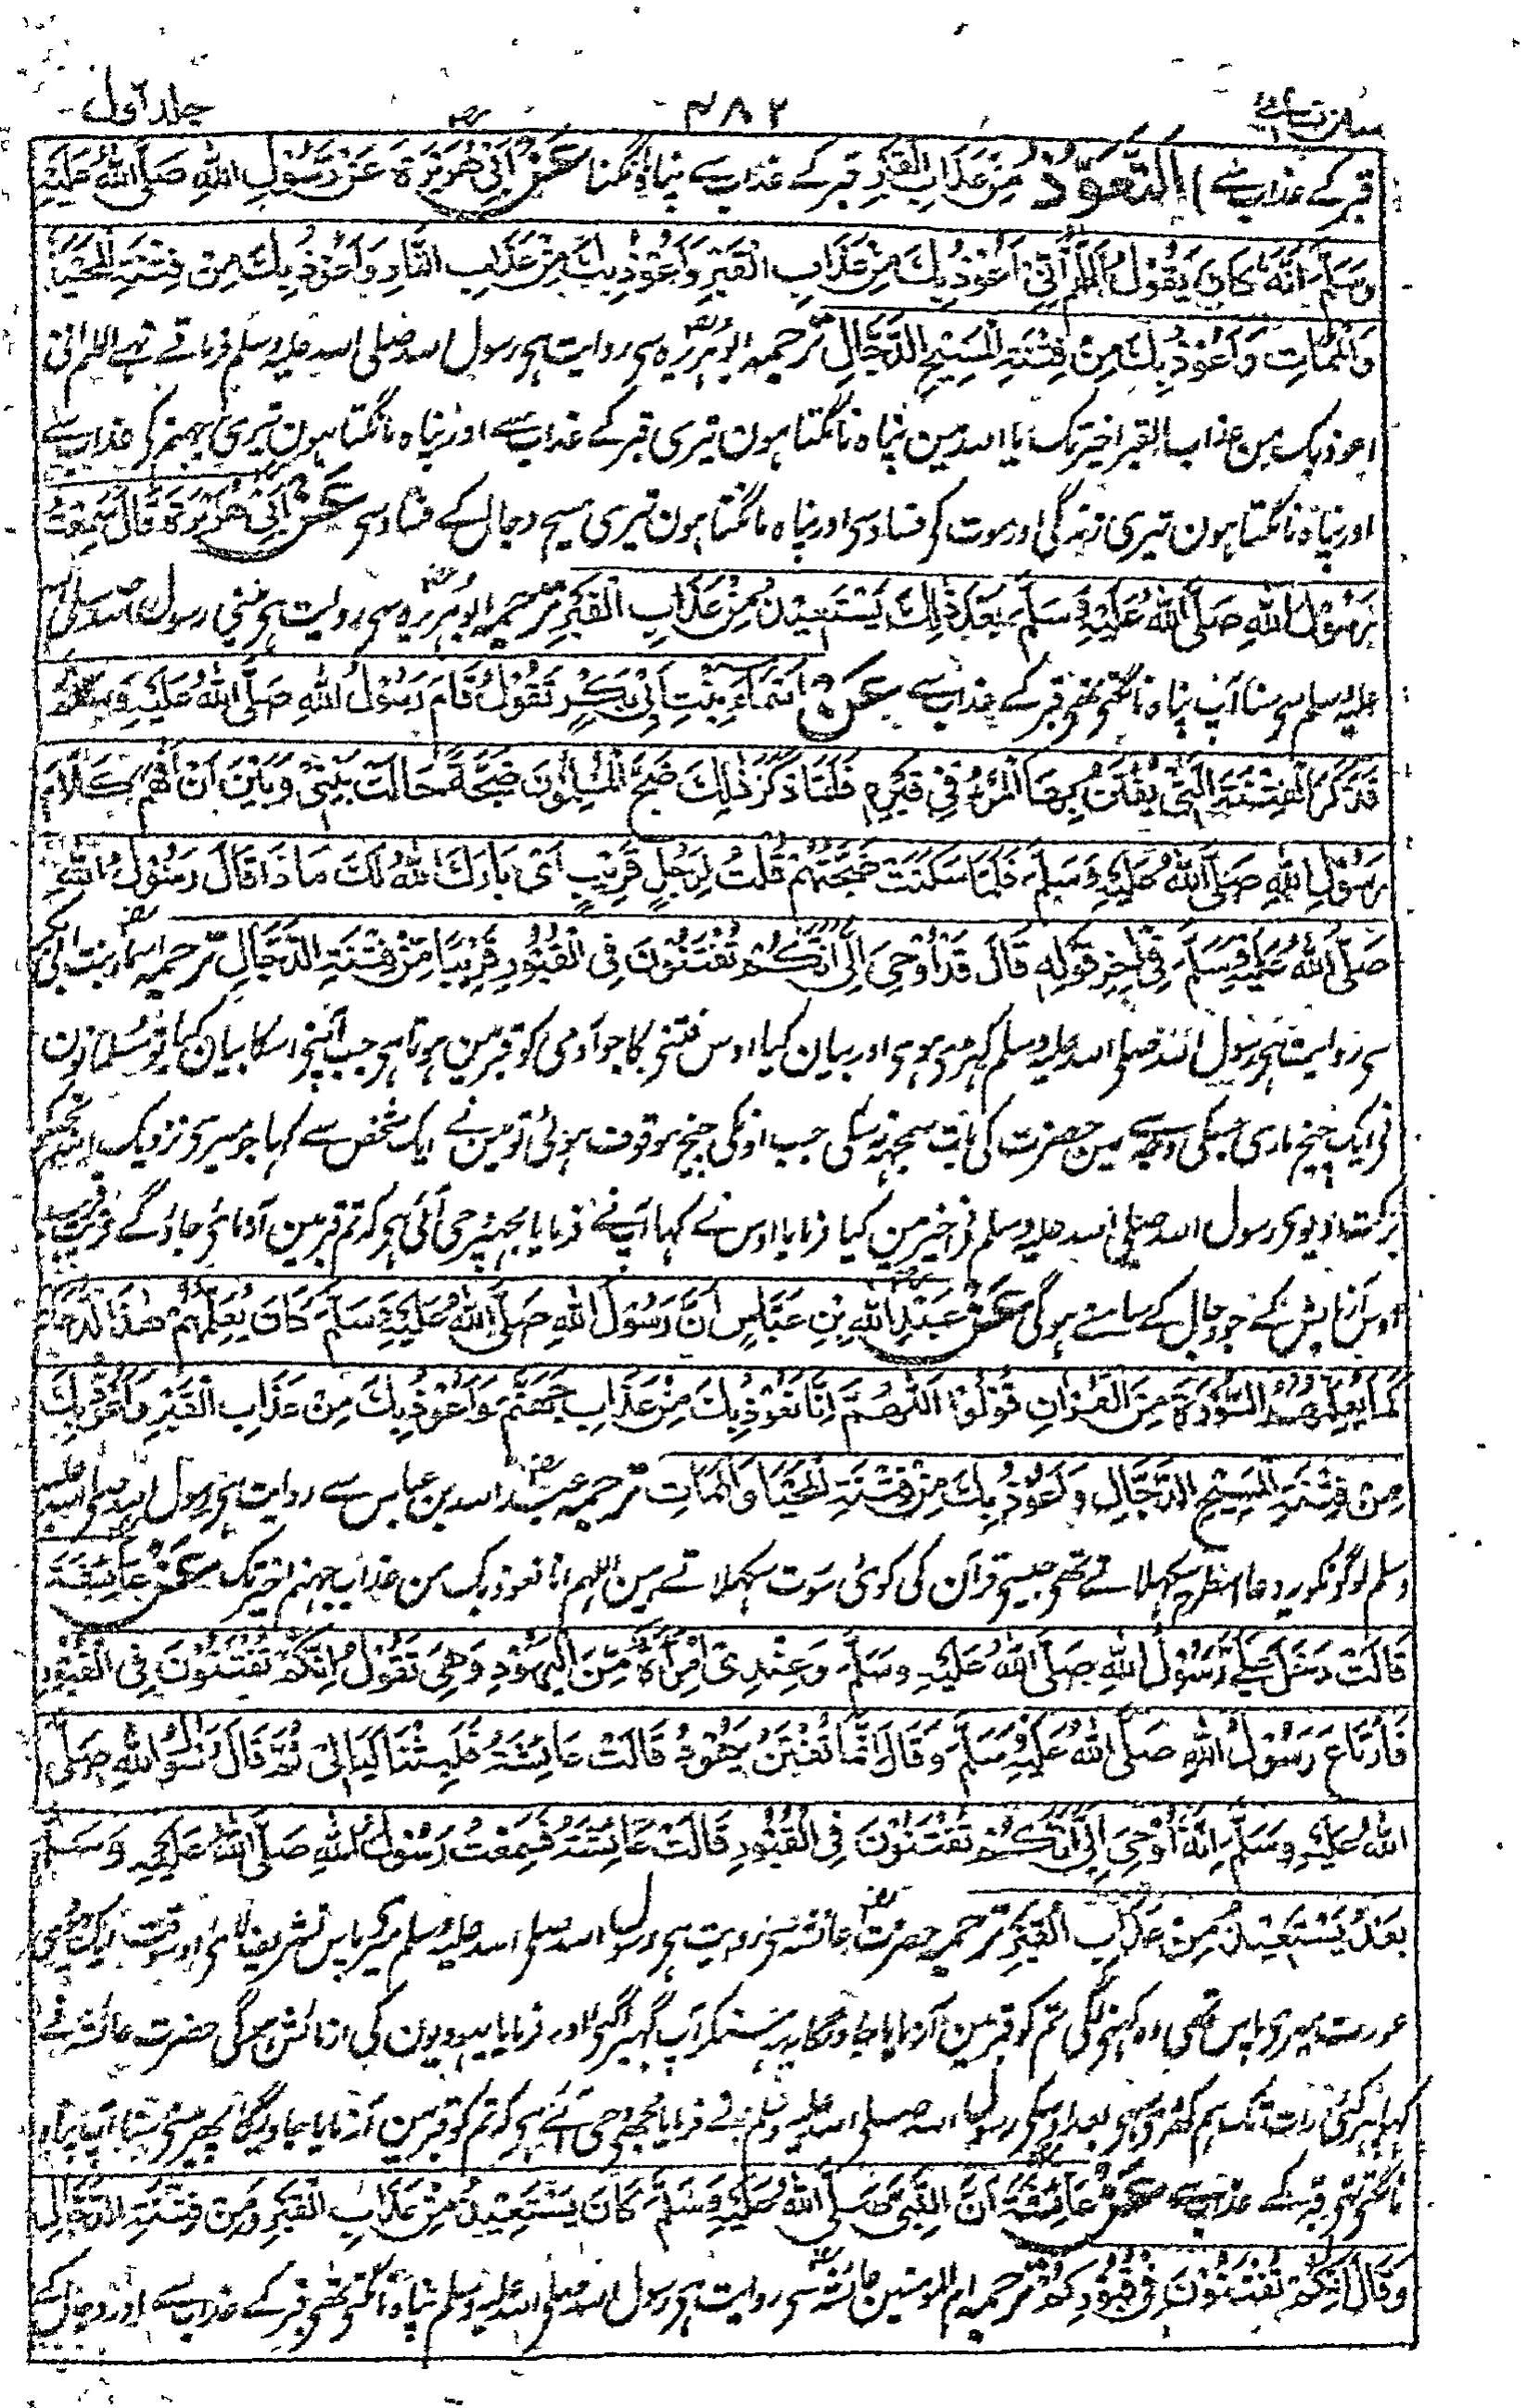 سنن نسائی ۴۸۲ جلد اول
قبر کے عذاب سے) اَلتَّعَوُّذُ مِنْ عَذَابِ الْقَبْرِ قبر کے عذاب سے پناہ مانگنا عَنْ اَبِیْ هُرَيْرَةَ عَنْ رَسُوْلِ اللهِ صَلَّى اللهُ عَلَيْهِ
وَسَلَّمَ اَنَّهٗ كَانَ يَقُوْلُ اَللّٰهُمَّ اِنِّیْ اَعُوْذُ بِكَ مِنْ عَذَابِ الْقَبْرِ وَاَعُوْذُ بِكَ مِنْ عَذَابِ النَّارِ وَاَعُوْذُ بِكَ مِنْ فِتْنَةِ الْمَحْيَا
وَالْمَمَاتِ وَاَعُوْذُ بِكَ مِنْ فِتْنَةِ الْمَسِيْحِ الدَّجَّالِ ترجمہ ابو ہریرہ سی روایت ہی رسول اللہ صلی اللہ علیہ وسلم فرماتے تہے اللہم انی
اعوذ بک من عذاب القبر اخیر تک یا اللہ مین پناہ مانگتا ہون تیری قبر کے عذاب سے اور پناہ مانگتا ہون تیری جہنم کی عذاب سے
اور پناہ مانگتا ہون تیری زندگی اور موت کی فساد سی اور پناہ مانگتا ہون تیری مسیح دجال کے فساد سی عَنْ اَبِیْ هُرَيْرَةَ قَالَ سَمِعْتُ
رَسُوْلَ اللهِ صَلَّى اللهُ عَلَيْهِ وَسَلَّمَ بَعْدَ ذٰلِكَ يَسْتَعِيْذُ مِنْ عَذَابِ الْقَبْرِ ترجمہ ابو ہریرہ سی روایت ہی مینی رسول اللہ صلی اللہ
علیہ وسلم سی سنا آپ پناہ مانگتی تھی قبر کے عذاب سے عَنْ اَسْمَاءَ بِنْتِ اَبِیْ بَكْرٍ تَقُوْلُ قَامَ رَسُوْلُ اللهِ صَلَّى اللهُ عَلَيْهِ وَسَلَّمَ
فَذَكَرَ الْفِتْنَةَ الَّتِیْ يُفْتَنُ بِهَا الْمَرْءُ فِیْ قَبْرِهٖ فَلَمَّا ذَكَرَ ذٰلِكَ ضَجَّ الْمُسْلِمُوْنَ ضَجَّةً حَالَتْ بَيْنِیْ وَبَيْنَ اَنْ اَفْهَمَ كَلَامَ
رَسُوْلِ اللهِ صَلَّى اللهُ عَلَيْهِ وَسَلَّمَ فَلَمَّا سَكَنَتْ ضَجَّتُهُمْ قُلْتُ لِرَجُلٍ قَرِيْبٍ اَیْ بَارَكَ اللهُ لَكَ مَا ذَا قَالَ رَسُوْلُ اللهِ
صَلَّى اللهُ عَلَيْهِ وَسَلَّمَ فِیْ اٰخِرِ قَوْلِهٖ قَالَ قَدْ اُوْحِیَ اِلَیَّ اَنَّكُمْ تُفْتَنُوْنَ فِی الْقُبُوْرِ قَرِيْبًا مِنْ فِتْنَةِ الدَّجَّالِ ترجمہ اسماء بنت ابی بکر
سی روایت ہی رسول اللہ صلی اللہ علیہ وسلم کہڑی ہوی اور بیان کیا اوس فتنی کا جو آدمی کو قبر مین ہوتا ہی جب آپنی اسکا بیان کیا تو مسلمانون
نی ایک چیخ ماری جسکی وجہ سے مین حضرت کی بات سمجہہ نہ سکی جب اونکی چیخ موقوف ہوئی تو مین نے ایک شخص سے کہا جو میری نزدیک اللہ تجکو
برکت دیوی رسول اللہ صلی اللہ علیہ وسلم نی اخیر مین کیا فرمایا اوس نے کہا آپ نے فرمایا مجہپر وحی آئی ہی کہ تم قبر مین آزمائی جاؤ گے قریب
اوس آزمایش کے جو دجال کے سامنے ہوگی عَنْ عَبْدِ اللهِ بْنِ عَبَّاسٍ اَنَّ رَسُوْلَ اللهِ صَلَّى اللهُ عَلَيْهِ وَسَلَّمَ كَانَ يُعَلِّمُهُمْ هٰذَا الدُّعَاءَ
كَمَا يُعَلِّمُهُمُ السُّوْرَةَ مِنَ الْقُرْاٰنِ قُوْلُوْا اَللّٰهُمَّ اِنَّا نَعُوْذُ بِكَ مِنْ عَذَابِ جَهَنَّمَ وَاَعُوْذُ بِكَ مِنْ عَذَابِ الْقَبْرِ وَاَعُوْذُ بِكَ
مِنْ فِتْنَةِ الْمَسِيْحِ الدَّجَّالِ وَاَعُوْذُ بِكَ مِنْ فِتْنَةِ الْمَحْيَا وَالْمَمَاتِ ترجمہ عبد اللہ بن عباس سے روایت ہی رسول اللہ صلی اللہ علیہ
وسلم لوگونکو یہ دعا اسطرح سکہلاتے تھی جیسی قرآن کی کوئی سورت سکہلاتے ہین اللہم انا نعوذ بک من عذاب جہنم اخیر تک عَنْ عَائِشَةَ
قَالَتْ دَخَلَ عَلَیَّ رَسُوْلُ اللهِ صَلَّى اللهُ عَلَيْهِ وَسَلَّمَ وَعِنْدِی امْرَاَةٌ مِّنَ الْيَهُوْدِ وَهِیَ تَقُوْلُ اِنَّكُمْ تُفْتَنُوْنَ فِی الْقُبُوْرِ
فَارْتَاعَ رَسُوْلُ اللهِ صَلَّى اللهُ عَلَيْهِ وَسَلَّمَ وَقَالَ اِنَّمَا تُفْتَنُ يَهُوْدُ قَالَتْ عَائِشَةُ فَلَبِثْنَا لَيَالِیَ ثُمَّ قَالَ رَسُوْلُ اللهِ صَلَّى
اللهُ عَلَيْهِ وَسَلَّمَ اِنَّهٗ اُوْحِیَ اِلَیَّ اَنَّكُمْ تُفْتَنُوْنَ فِی الْقُبُوْرِ قَالَتْ عَائِشَةُ فَسَمِعْتُ رَسُوْلَ اللهِ صَلَّى اللهُ عَلَيْهِ وَسَلَّمَ
بَعْدُ يَسْتَعِيْذُ مِنْ عَذَابِ الْقَبْرِ ترجمہ حضرت عائشہ سی روایت ہی رسول اللہ صلی اللہ علیہ وسلم میری پاس تشریف لائی اوسوقت ایک یہودی
عورت میری پاس تھی وہ کہنی لگی تم کو قبر مین آزمایا جاویگا یہ سنکر آپ گہبرا گئی اور فرمایا یہودیون کی ازمائش ہوگی حضرت عائشہ نے
کہا پہر کئی رات تک ہم ٹھری رہی بعد اوسکی رسول اللہ صلی اللہ علیہ وسلم نے فرمایا مجھی وحی آئے ہی کہ تم کو قبر مین آزمایا جاویگا پھر مینی سنا آپ پناہ
مانگتی تھی قبر کے عذاب سے عَنْ عَائِشَةَ اَنَّ النَّبِیَّ صَلَّى اللهُ عَلَيْهِ وَسَلَّمَ كَانَ يَسْتَعِيْذُ مِنْ عَذَابِ الْقَبْرِ وَمِنْ فِتْنَةِ الدَّجَّالِ
وَقَالَ اِنَّكُمْ تُفْتَنُوْنَ فِیْ قُبُوْرِكُمْ ترجمہ ام المومنین عائشہ سی روایت ہی رسول اللہ صلی اللہ علیہ وسلم پناہ مانگتی تھی قبر کے عذاب سے اور دجال کے